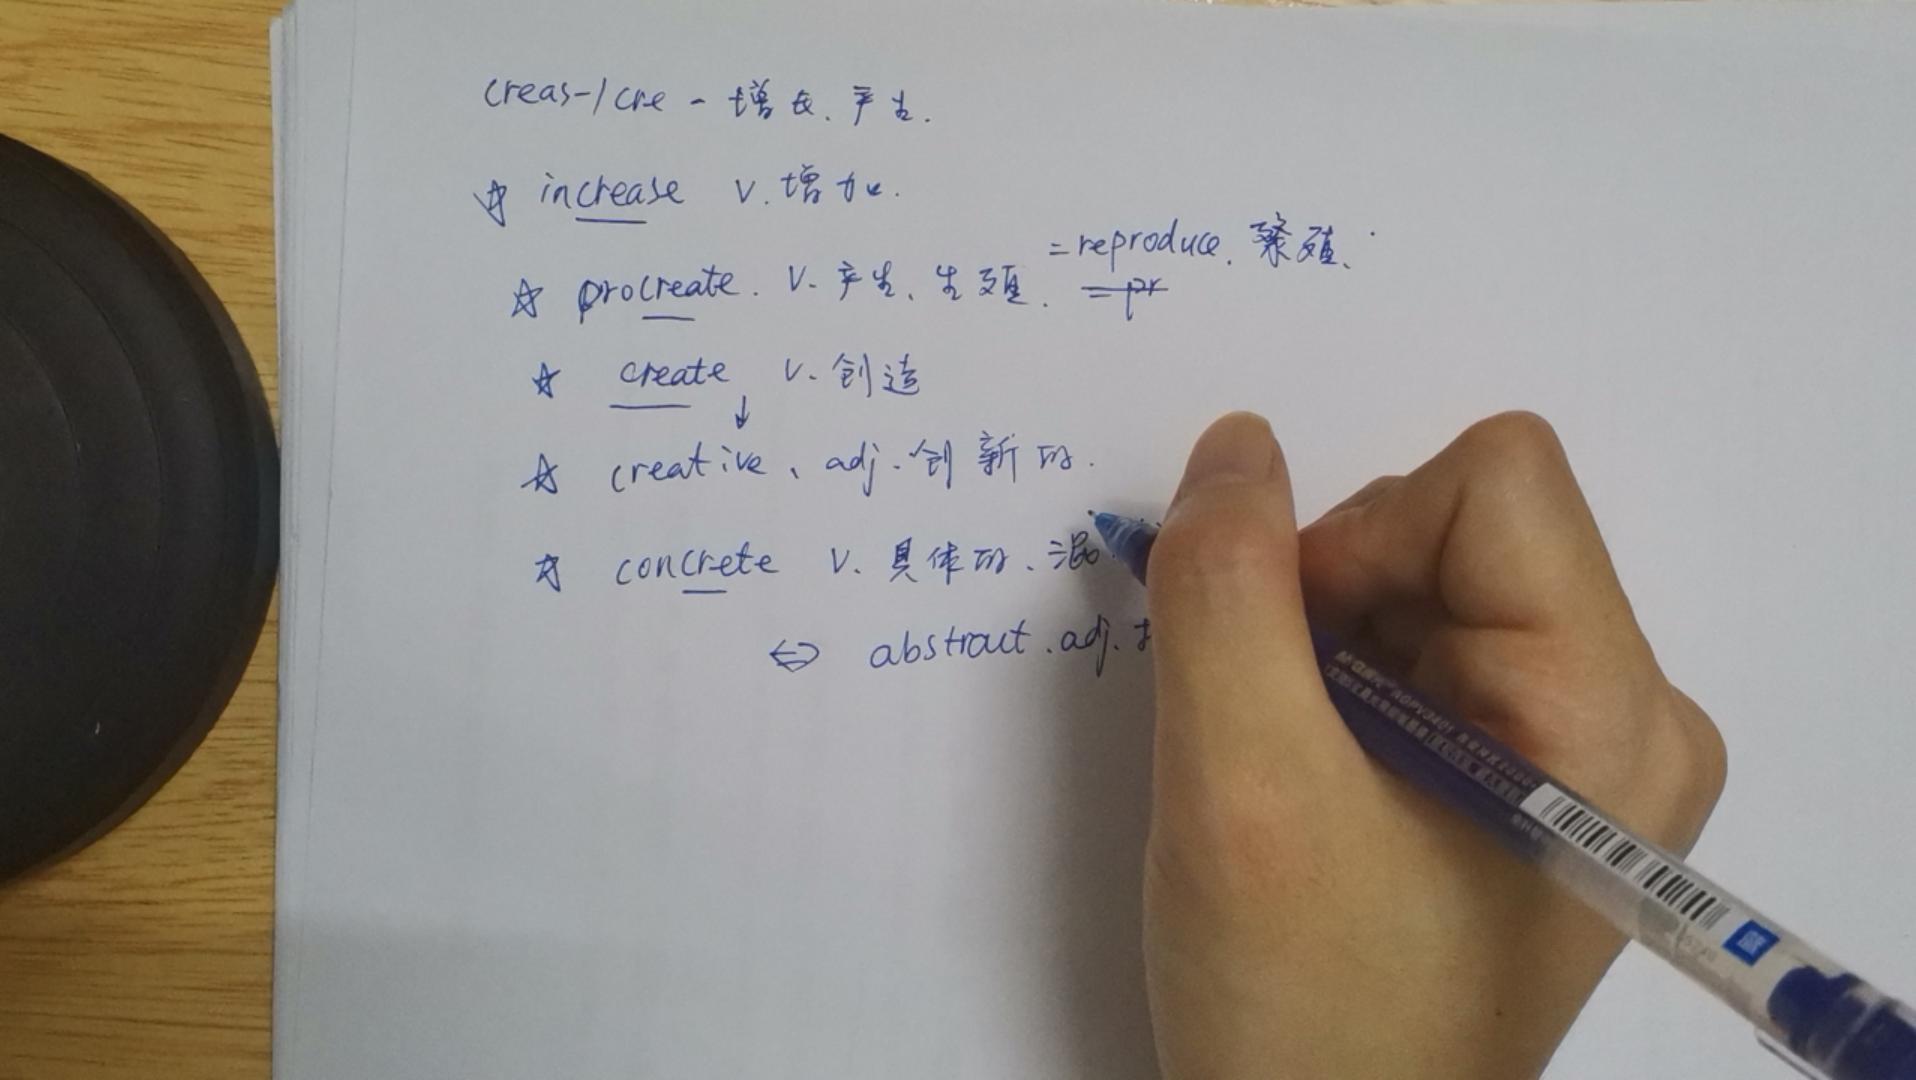 creas-/cre - 增长、产生.
☆ increase v. 增加.
=reproduce. 繁殖、
☆ procreate. v. 产生、生殖. =pr
☆ create v. 创造
↓
☆ creative、adj. 创新的.
☆ concrete v. 具体的、混
⇔ abstract. adj.
M&G晨光 AGPV3401